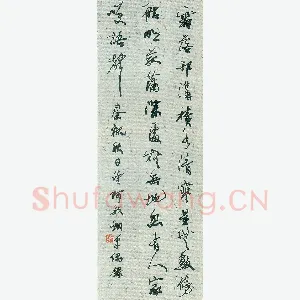 霜落邗溝積水清寒星無數傍
船明菰蒲深處疑無地忽有人家
笑語聲 秦觀秋日詩
Shufawang.CN